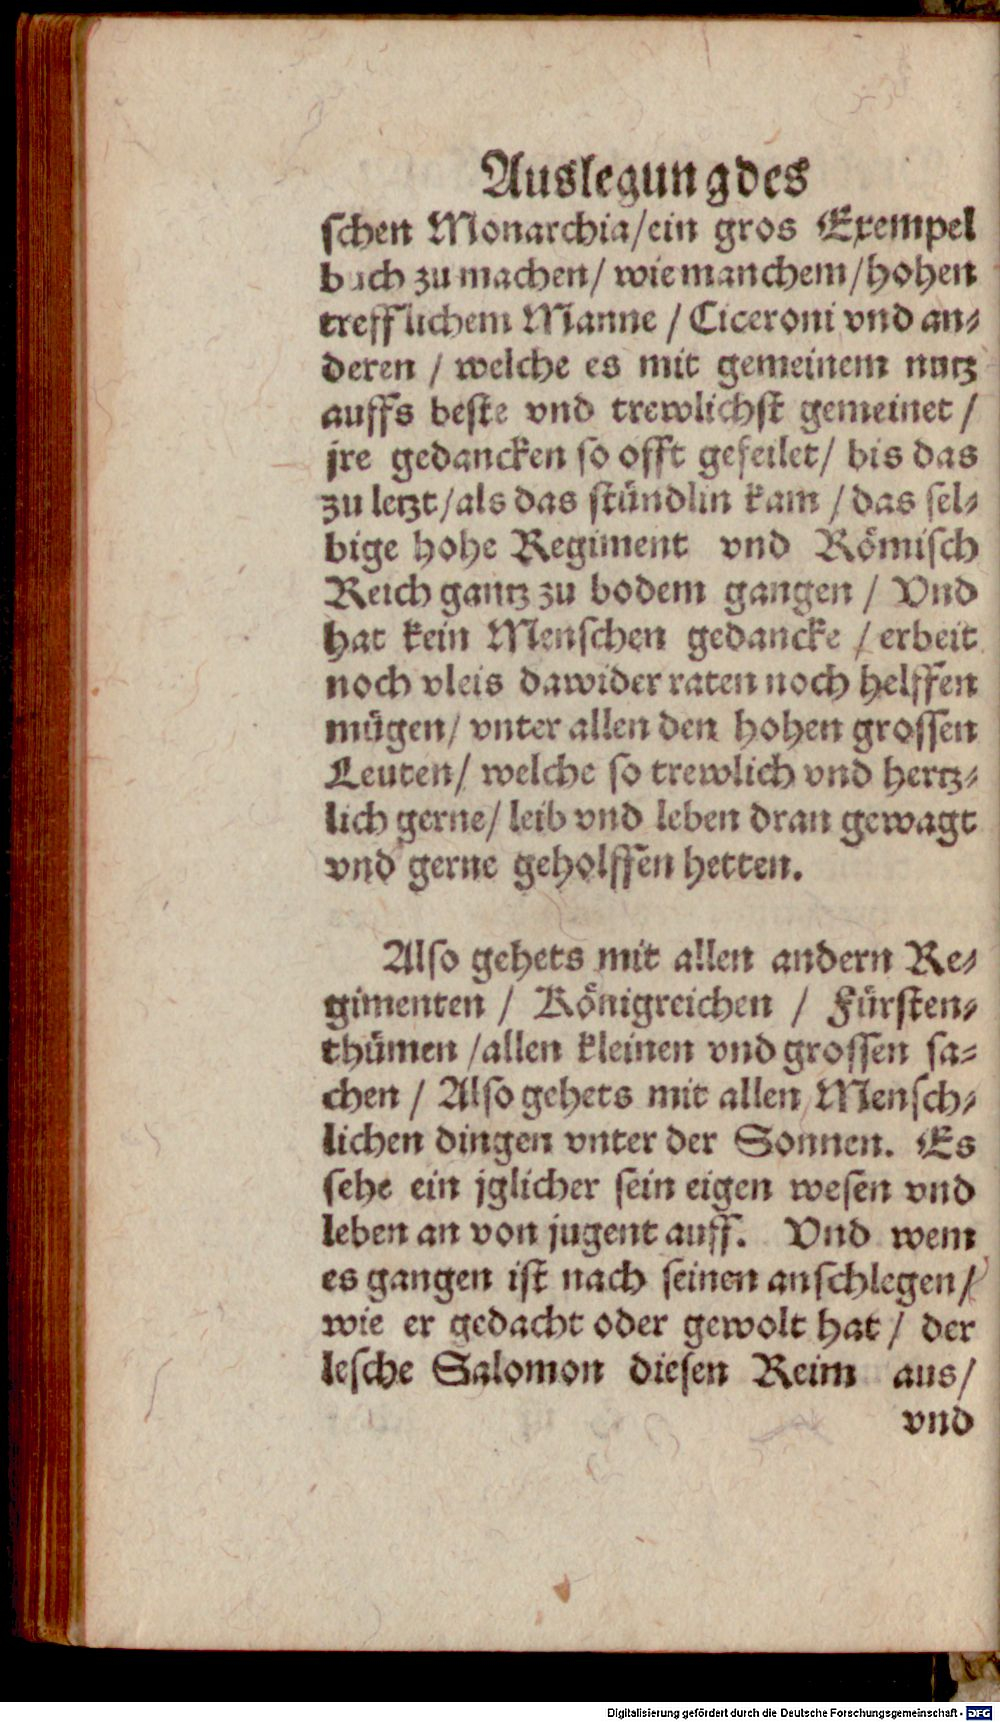 Auslegung des
schen Monarchia/ein gros Exempel
buch zu machen/ wie manchem/hohen
trefflichem Manne / Ciceroni vnd an⸗
deren / welche es mit gemeinem nutz
auffs beste vnd trewlichst gemeinet /
jre gedancken so offt gefeilet/ bis das
zu letzt/als das stündlin kam / das sel⸗
bige hohe Regiment vnd Römisch
Reich gantz zu bodem gangen / Vnd
hat kein Menschen gedancke / erbeit
noch vleis dawider raten noch helffen
mügen/ vnter allen den hohen grossen
Leuten/ welche so trewlich vnd hertz⸗
lich gerne/ leib vnd leben dran gewagt
vnd gerne geholffen hetten.
Also gehets mit allen andern Re⸗
gimenten / Königreichen / Fürsten⸗
thümen /allen kleinen vnd grossen sa⸗
chen / Also gehets mit allen Mensch⸗
lichen dingen vnter der Sonnen. Es
sehe ein jglicher sein eigen wesen vnd
leben an von jugent auff. Vnd wem
es gangen ist nach seinen anschlegen/
wie er gedacht oder gewolt hat / der
lesche Salomon diesen Reim aus/
vnd
Digitalisierung gefördert durch die Deutsche Forschungsgemeinschaft - DFG